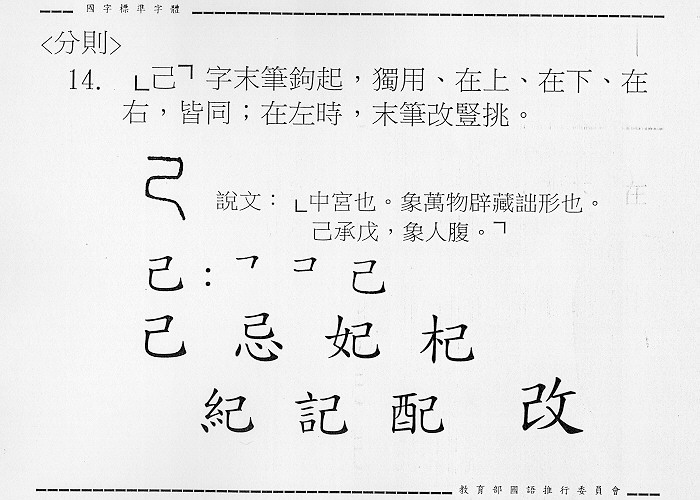 國字標準字體
<分則>
14. 「己」字末筆鉤起，獨用、在上、在下、在
右，皆同；在左時，末筆改豎挑。
說文：「中宮也。象萬物辟藏詘形也。
己承戊，象人腹。」
己：㇕ コ 己
己 忌 妃 杞
紀 記 配 改
教育部國語推行委員會